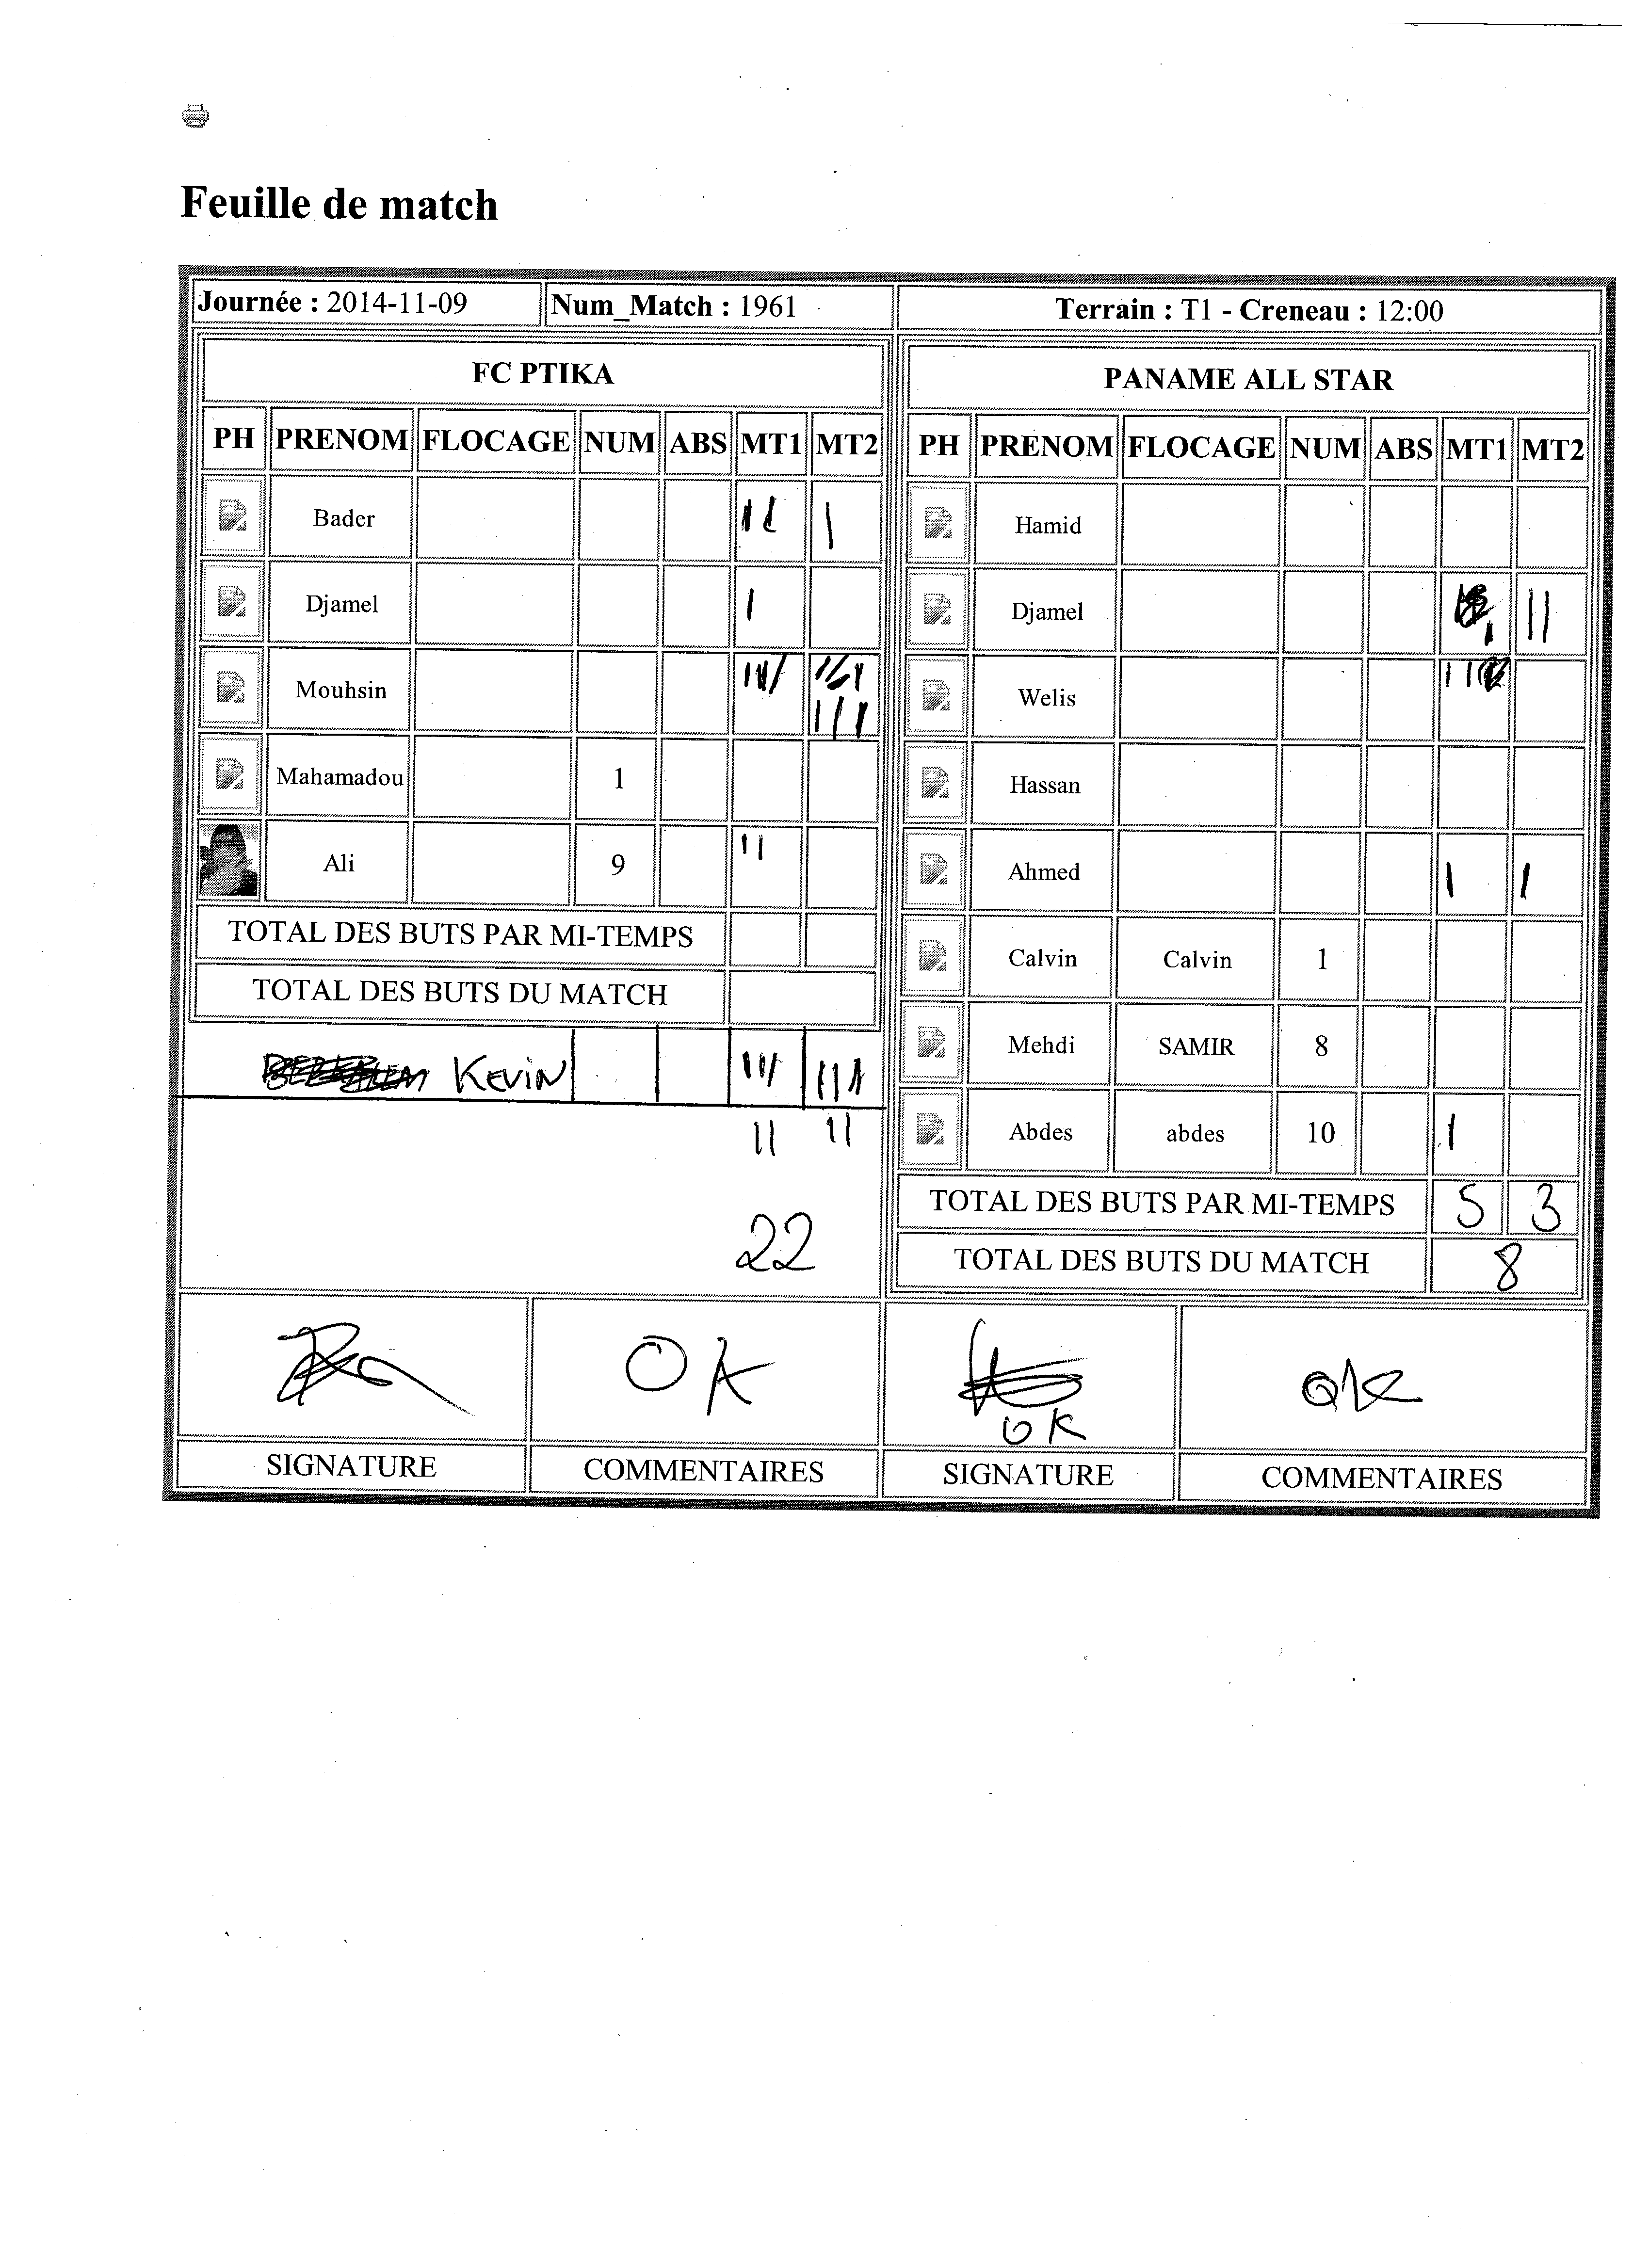 Feuille de match
Journée : 2014-11-09 Num_Match : 1961 Terrain : T1 - Creneau : 12:00
FC PTIKA
PH PRENOM FLOCAGE NUM ABS MT1 MT2
Bader II I
Djamel I
Mouhsin
Mahamadou 1
Ali 9 II
TOTAL DES BUTS PAR MI-TEMPS
TOTAL DES BUTS DU MATCH
KEVIN
II II
22
PANAME ALL STAR
PH PRENOM FLOCAGE NUM ABS MT1 MT2
Hamid
Djamel I II
Welis II
Hassan
Ahmed I I
Calvin Calvin 1
Mehdi SAMIR 8
Abdes abdes 10 I
TOTAL DES BUTS PAR MI-TEMPS 5 3
TOTAL DES BUTS DU MATCH 8
OK
OK
OK
SIGNATURE COMMENTAIRES SIGNATURE COMMENTAIRES